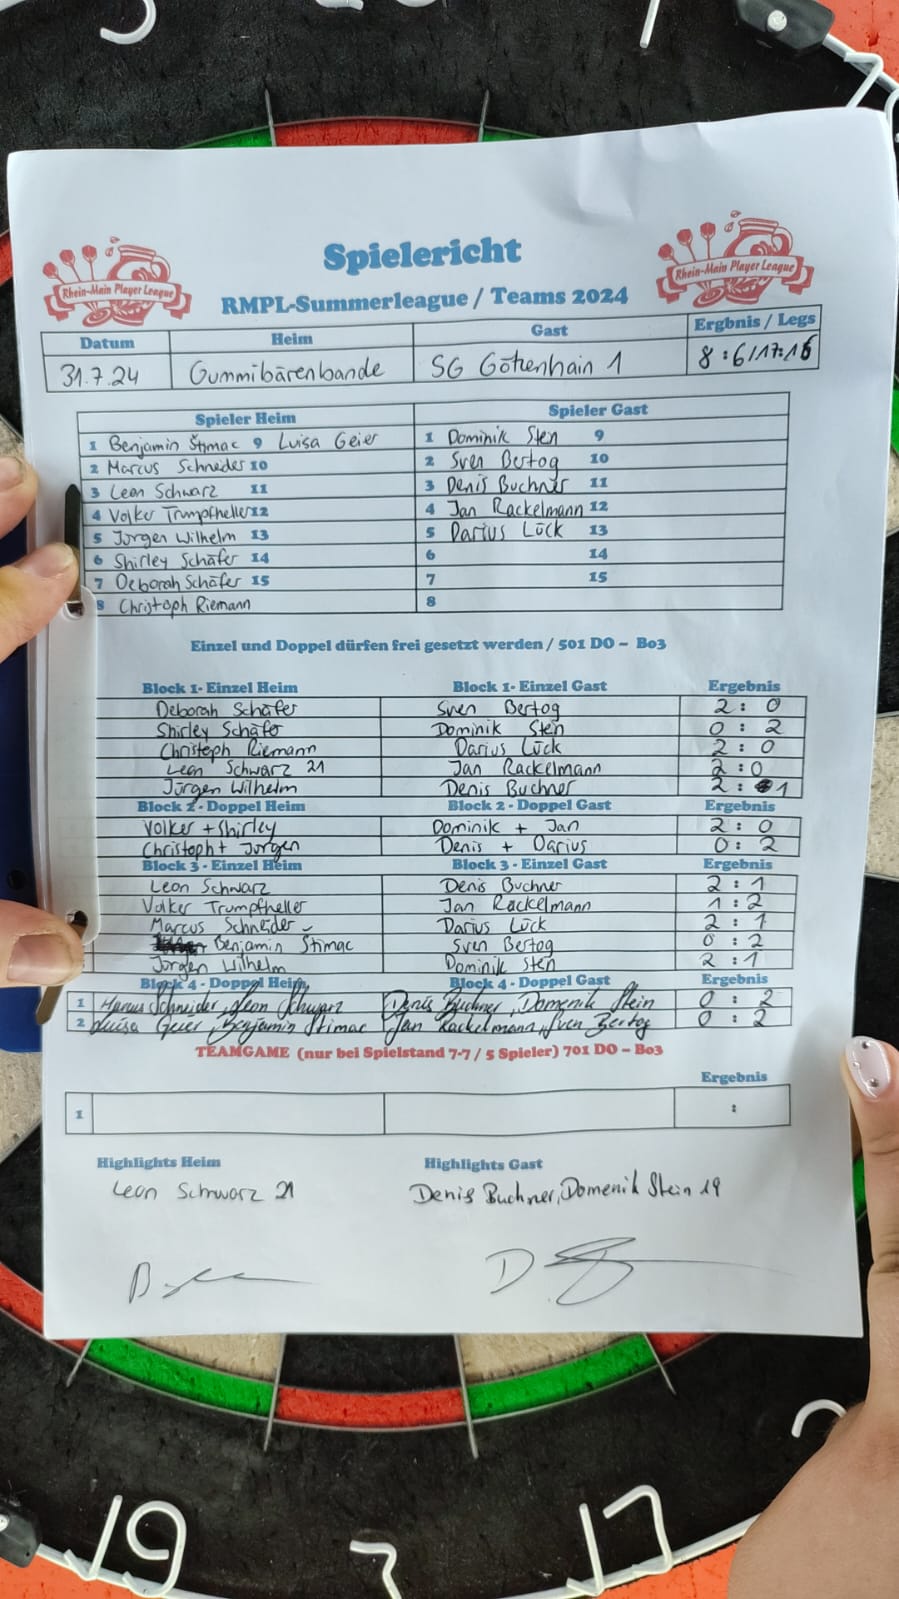 Spielericht
Rhein-Main Player League
Rhein-Main Player League
RMPL-Summerleague / Teams 2024
Datum Heim Gast Ergbnis / Legs
31.7.24 Gummibärenbande SG Götzenhain 1 8:6/17:16
Spieler Heim Spieler Gast
1 Benjamin Štimac 9 Luisa Geier 1 Dominik Stein 9
2 Marcus Schneider 10 2 Sven Bertog 10
3 Leon Schwarz 11 3 Denis Buchner 11
4 Volker Trumpfheller 12 4 Jan Rackelmann 12
5 Jürgen Wilhelm 13 5 Darius Lück 13
6 Shirley Schäfer 14 6 14
7 Deborah Schäfer 15 7 15
8 Christoph Riemann 8
Einzel und Doppel dürfen frei gesetzt werden / 501 DO – Bo3
Block 1- Einzel Heim Block 1- Einzel Gast Ergebnis
Deborah Schäfer Sven Bertog 2 : 0
Shirley Schäfer Dominik Stein 0 : 2
Christoph Riemann Darius Lück 2 : 0
Leon Schwarz 21 Jan Rackelmann 2 : 0
Jürgen Wilhelm Denis Buchner 2 : 1
Block 2 - Doppel Heim Block 2 - Doppel Gast Ergebnis
Volker + Shirley Dominik + Jan 2 : 0
Christoph + Jürgen Denis + Darius 0 : 2
Block 3 - Einzel Heim Block 3 - Einzel Gast Ergebnis
Leon Schwarz Denis Buchner 2 : 1
Volker Trumpfheller Jan Rackelmann 1 : 2
Marcus Schneider Darius Lück 2 : 1
Benjamin Štimac Sven Bertog 0 : 2
Jürgen Wilhelm Dominik Stein 2 : 1
Block 4 - Doppel Heim Block 4 - Doppel Gast Ergebnis
1 Marcus Schneider, Leon Schwarz Denis Buchner, Domenik Stein 0 : 2
2 Luisa Geier, Benjamin Stimac Jan Rackelmann, Sven Bertog 0 : 2
TEAMGAME (nur bei Spielstand 7-7 / 5 Spieler) 701 DO – Bo3
Ergebnis
1 :
Highlights Heim Highlights Gast
Leon Schwarz 21 Denis Buchner, Domenik Stein 19
19 3 17